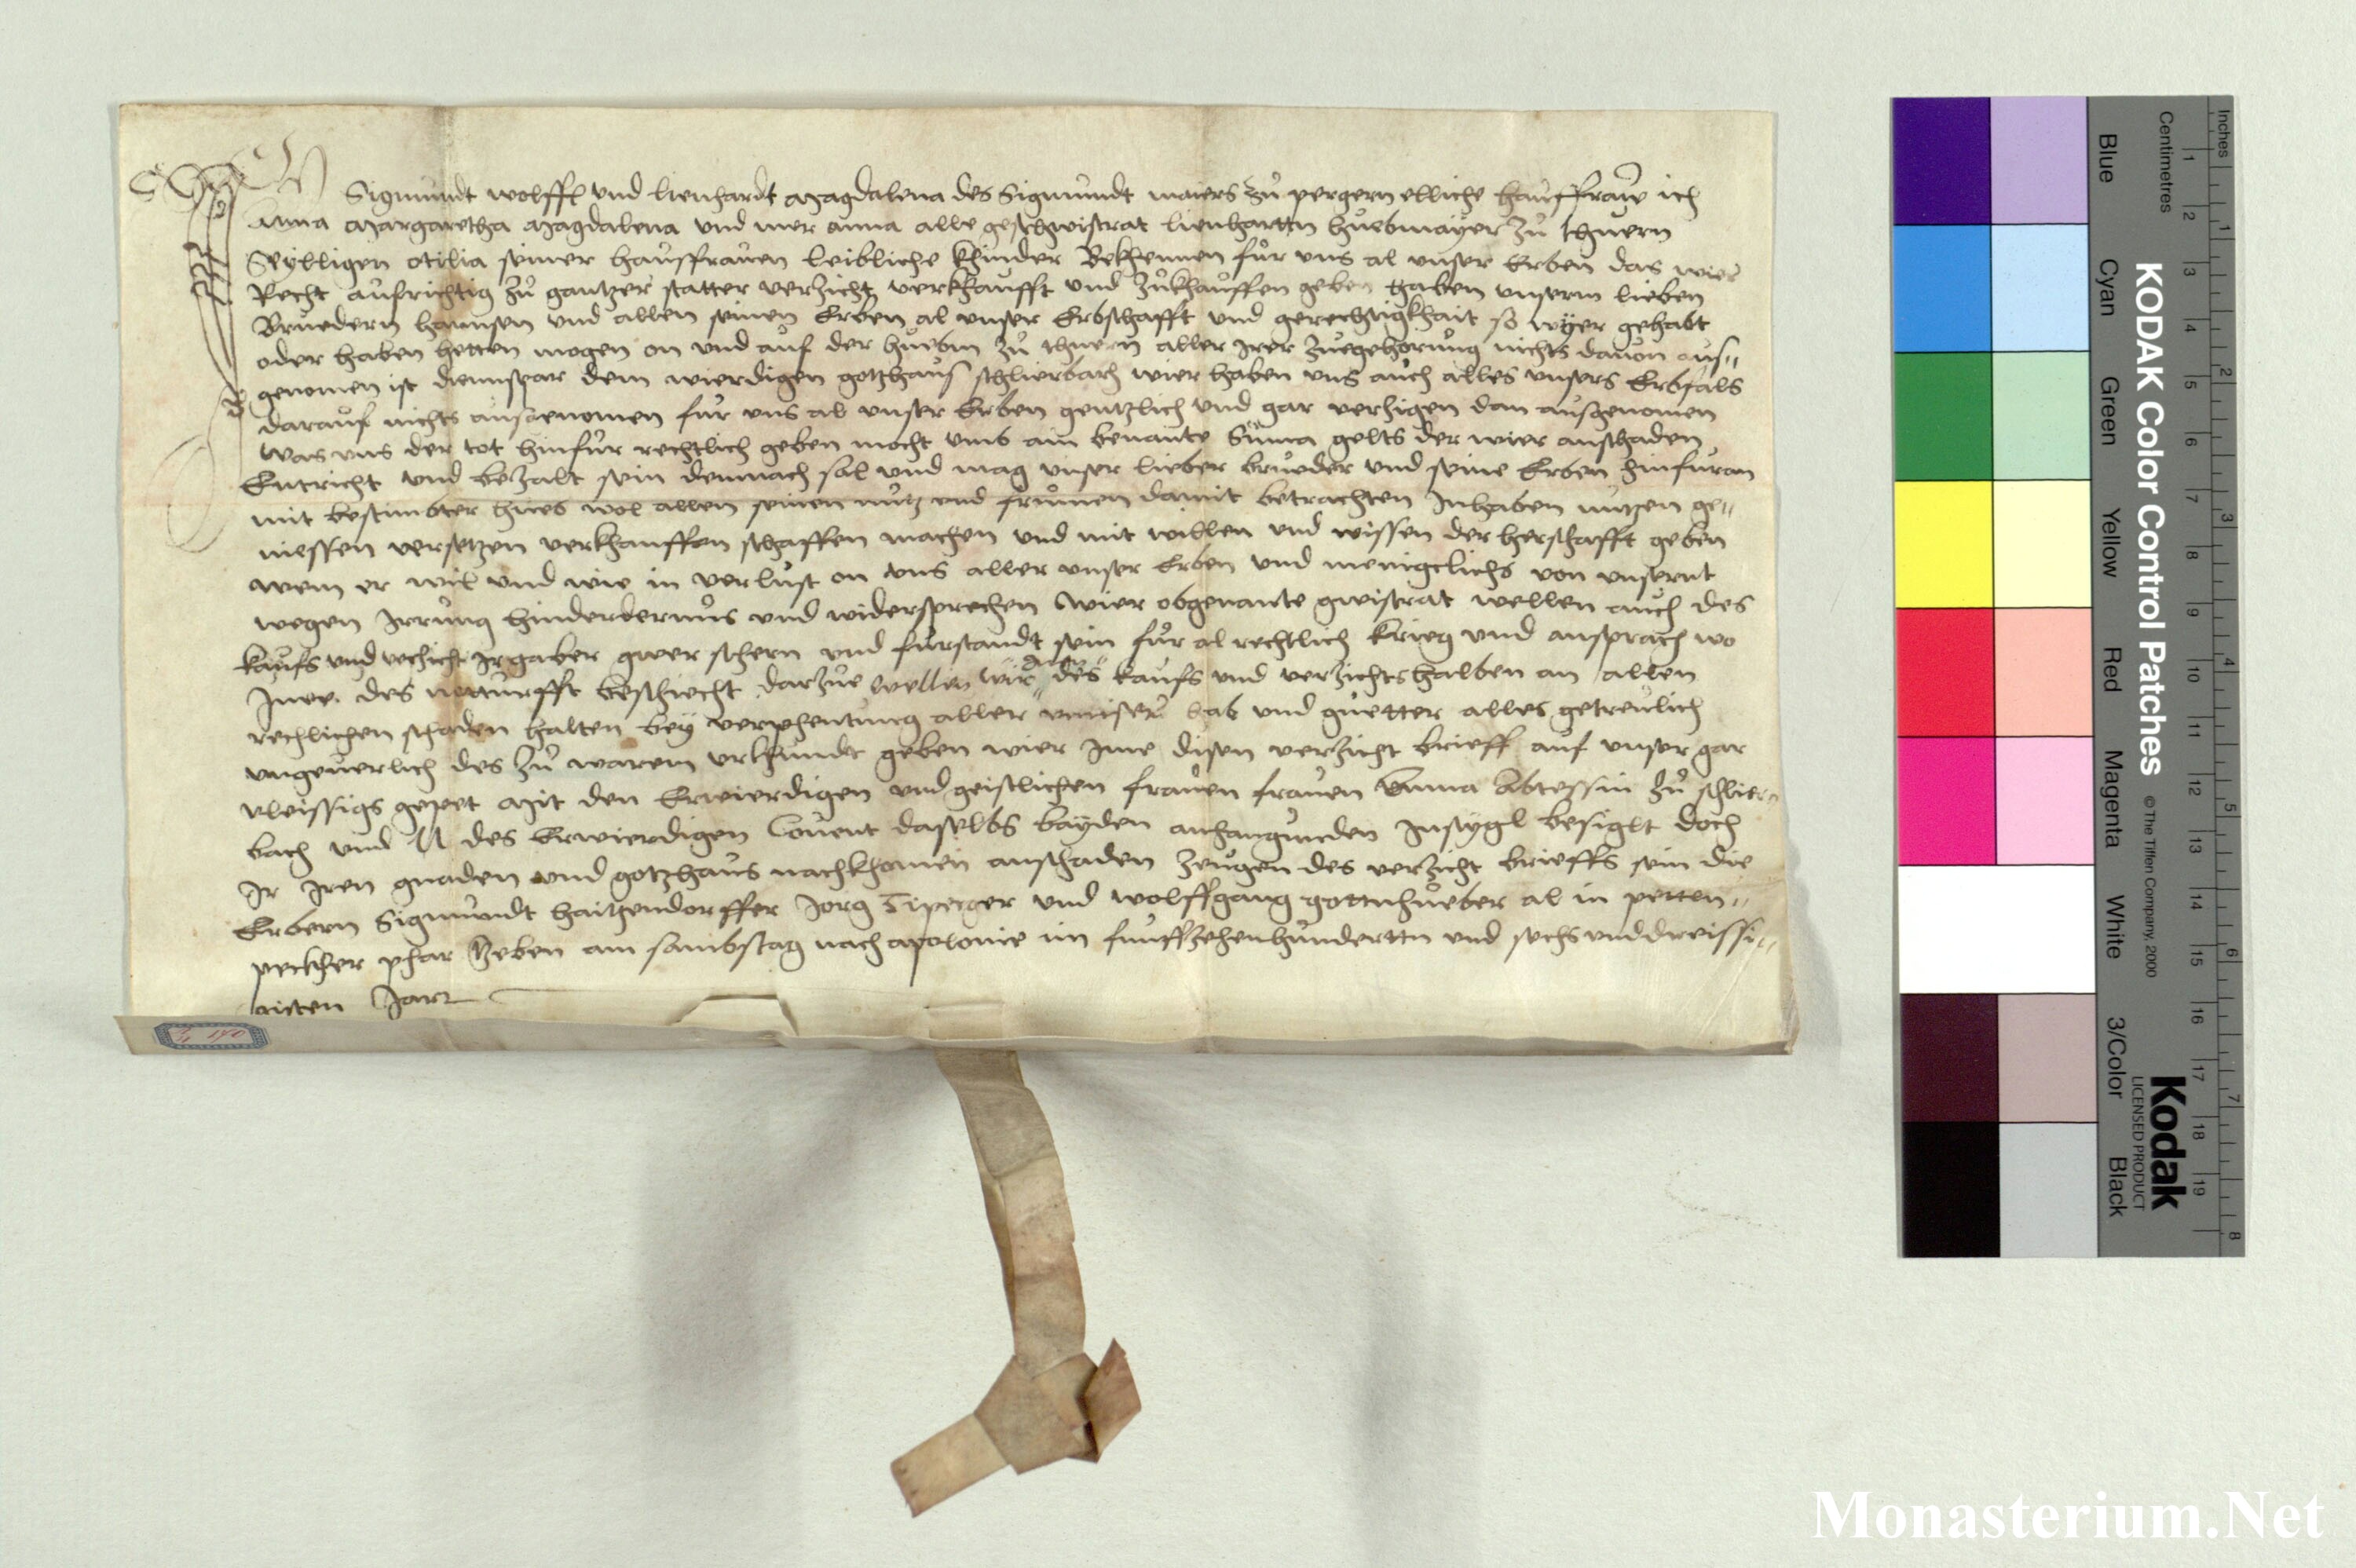 Sigmundt wolffl und lienhardt Magdalena des Sigmundt maiers zu pergern elliche hausfraw ich
Anna Margaretha Magdalena und mer anna alle geschwistrat lienhartn huebmayer zu
otilia seiner hausfrauen leibliche khinder Bekhennen fur uns al unser Erben das wier
Recht aufrichtig zu gantzer statter verzicht verkhaufft und zukhauffen geben haben unserm lieben
Bruedern hannsen und allen seinen Erben al unser Erbschafft und gerechtigkhait so wyer gehabt
oder haben hetten mogen on und auf der huebm zu aller irer zuegehorung nichts davon aus„
genomen ist diennspar dem wierdigen gotzhaus schlierbach wier haben uns auch alles unsers Erbfals
darauf nichts ausgenomen fur uns al unser Erben gentzlich und gar verzigen dan ausgenomen
was uns der tot hinfur rechtlich geben mocht umb ain benante Suma gelts der wier anschaden
Entricht und bezalt sein demnach sol und mag unser lieber brueder und seine Erben hinfuran
mit bestimbter hueb wol allen seinen nutz und frumen damit betrachten Inhaben nutzen ge„
niessen versetzen verkhauffen schaffen machen und mit willen und wissen der herschafft geben
wem er wil und wie in verlust on uns aller unser Erben und menigclichs von unsernt
wegen Irrung hinderdernus und widersprechen wier obgenante gwistrat wellen auch des
kaufs und verzicht Ir gaber gwer schern und furstandt sein fur al rechtlich krieg und ansprach wo
Inen des notturfft beschiecht darzue wellen wir des kaufs und verzichts halben an allen
rechlichen schaden halten bey verphentung aller unser hab und guetter alles getreulich
ungeverlich des zu warem urkhundt geben wier Ime disen verzicht brieff auf unser gar
vleissigs gepet Mit den Erwierdigen und geistlichen frauen frauen Anna Abtessin zu schlier„
bach und N des Erwierdigen Covent daselbs bayden anhangunden Insygl besiglt doch
Ir Iren gnaden und gotzhaus nachkhomen anschaden zeugen des verzicht brieffs sein die
Erbern Sigmundt haitzendorffer Jorg und wolffgang al in petten„
pekher phar Geben am sambstag nach apolonie im funffzehenhundertn und sechs und dreissi„
gisten Jar
KODAK Color Control Patches
© The Tiffen Company, 2000
Kodak
LICENSED PRODUCT
Inches
Centimetres
1 2 3 4 5 6 7 8
1 2 3 4 5 6 7 8 9 10 11 12 13 14 15 16 17 18 19
Blue
Cyan
Green
Yellow
Red
Magenta
White
3/Color
Black
Monasterium.Net